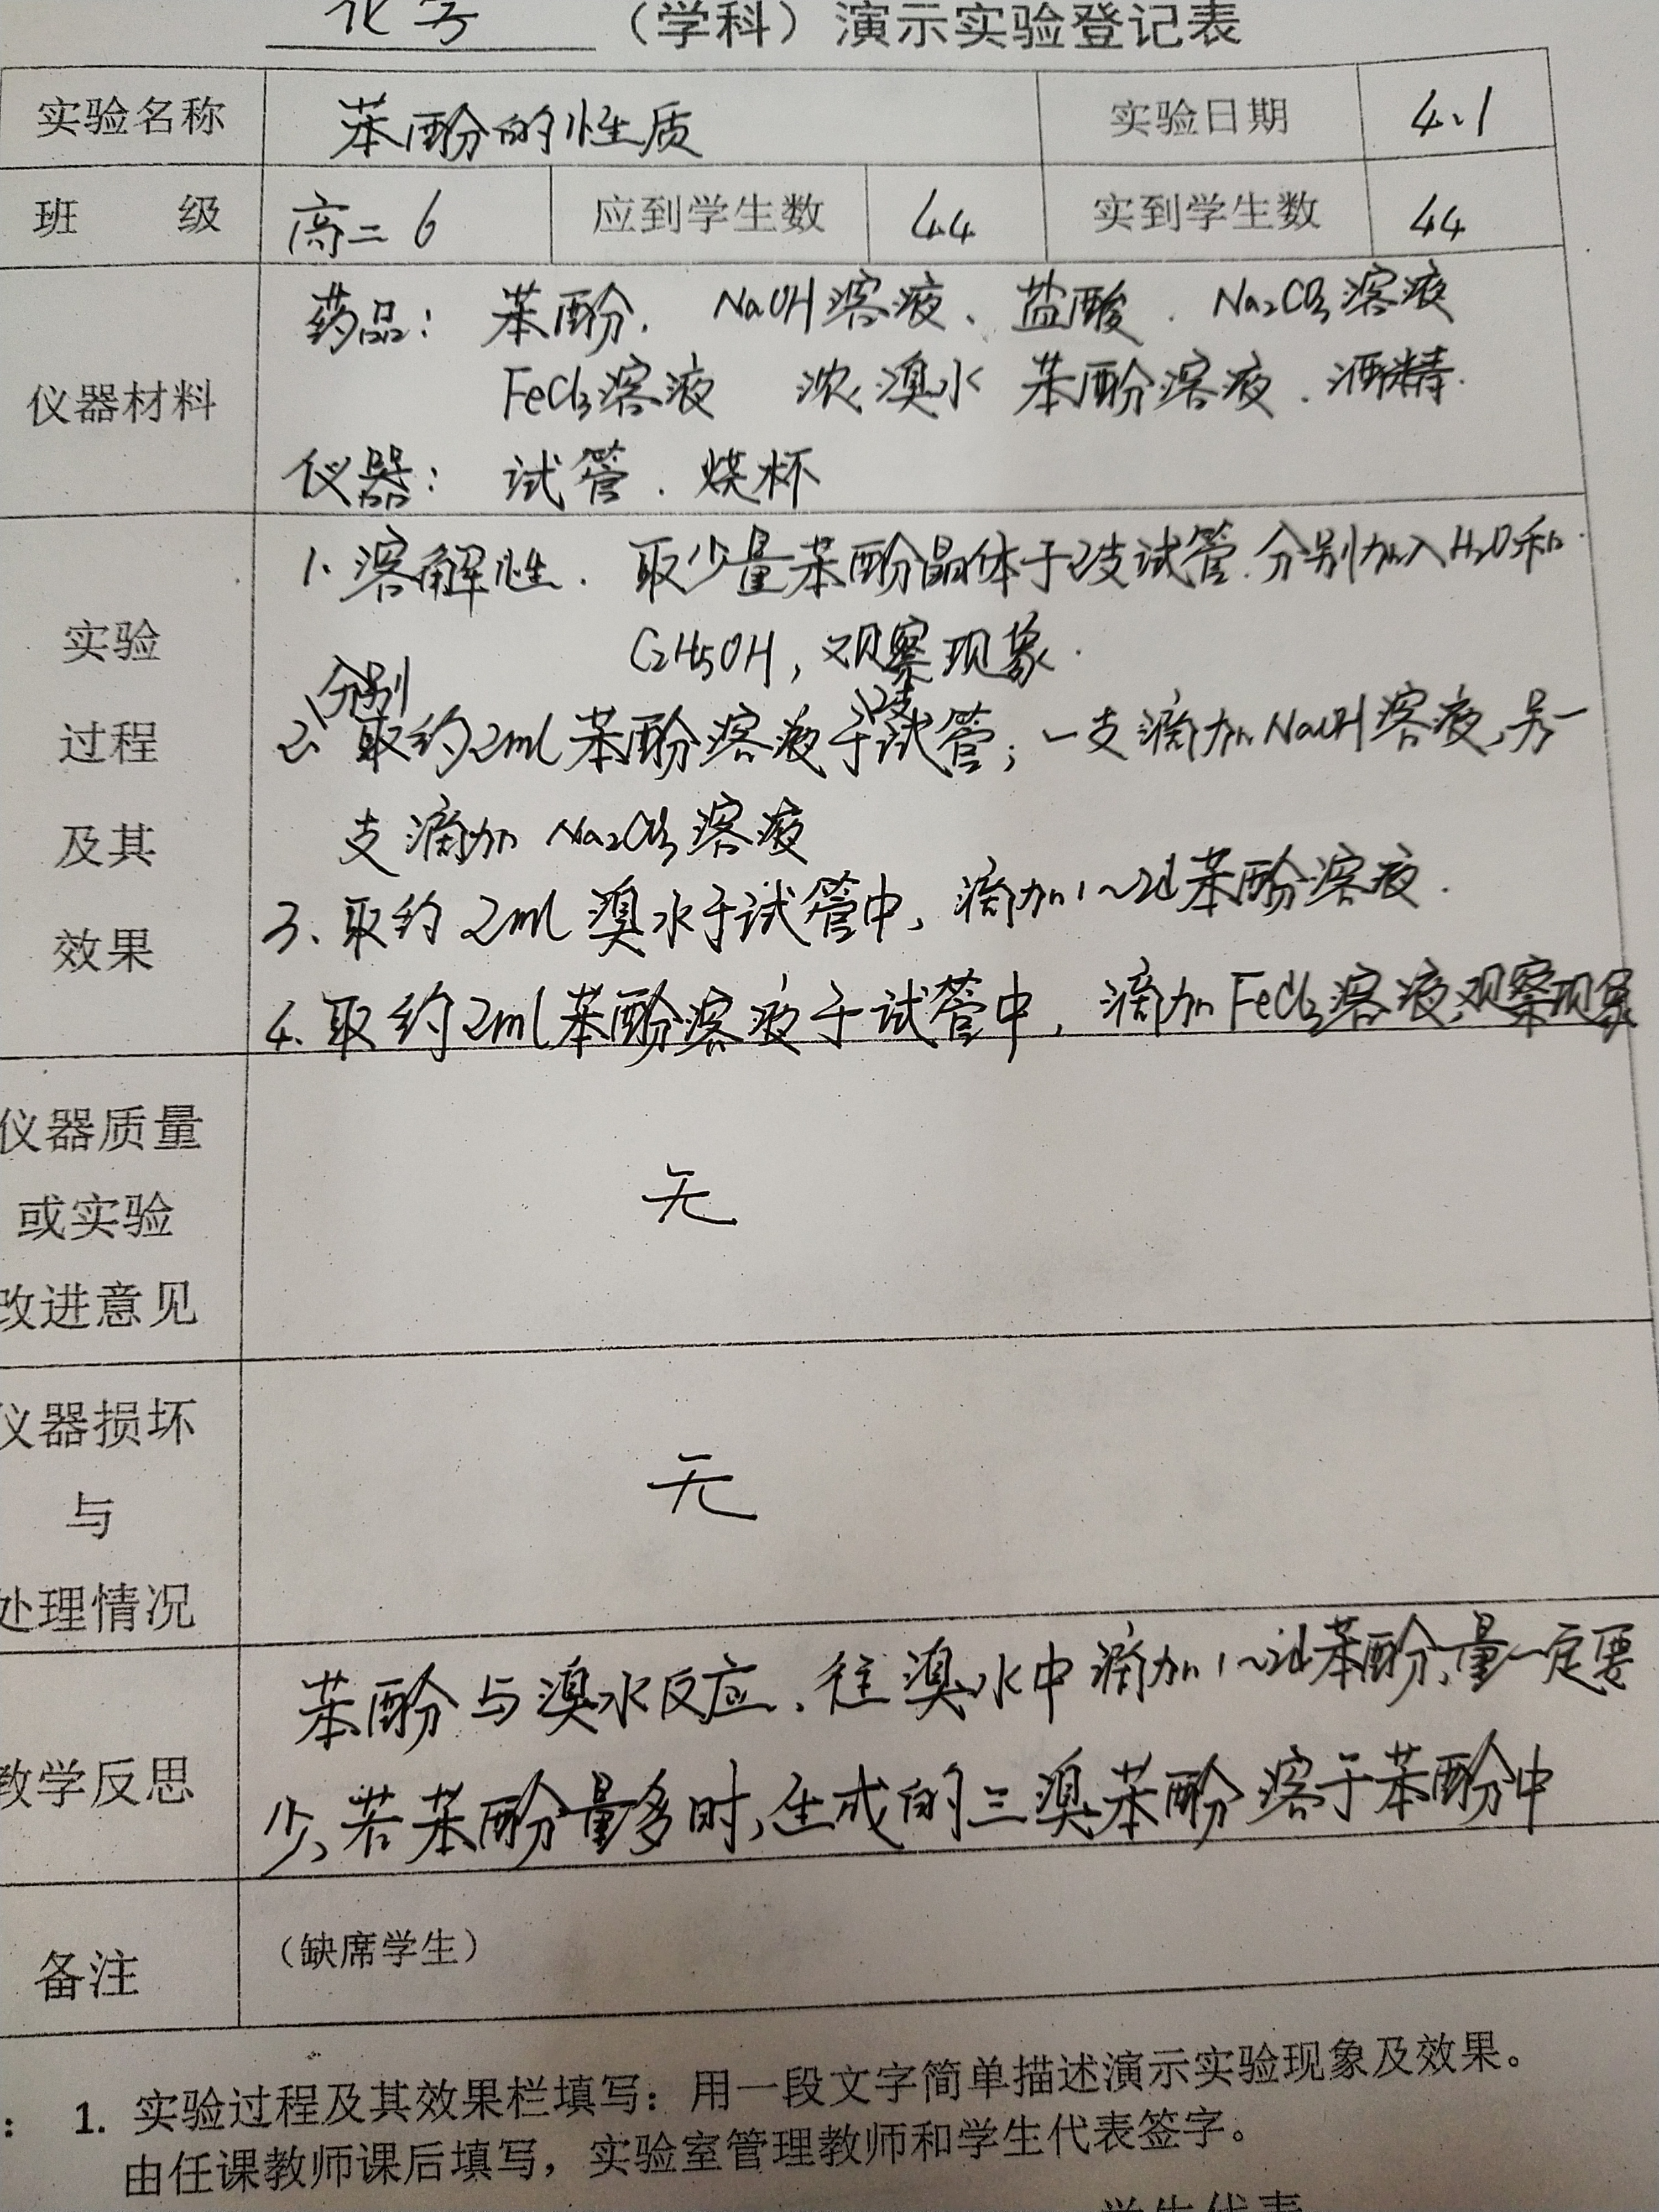 化学 （学科）演示实验登记表
实验名称 苯酚的性质 实验日期 4.1
班 级 高二6 应到学生数 44 实到学生数 44
药品： 苯酚、 NaOH溶液、盐酸、Na₂CO₃溶液
仪器材料 FeCl₃溶液 浓溴水 苯酚溶液、酒精.
仪器： 试管、烧杯
1. 溶解性. 取少量苯酚晶体于2支试管.分别加入H₂O和
C₂H₅OH，观察现象.
2、分别取约2ml苯酚溶液于2支试管；一支滴加NaOH溶液，另一
支滴加 Na₂CO₃溶液
3、取约2ml溴水于试管中，滴加1～2d苯酚溶液.
4.取约2ml苯酚溶液于试管中，滴加FeCl₃溶液，观察现象
实验
过程
及其
效果
仪器质量
或实验 无
改进意见
仪器损坏
与 无
处理情况
苯酚与溴水反应，往溴水中滴加1～2d苯酚，量一定要
教学反思 少，若苯酚量多时，生成的三溴苯酚溶于苯酚中
备注 （缺席学生）
： 1. 实验过程及其效果栏填写：用一段文字简单描述演示实验现象及效果。
由任课教师课后填写，实验室管理教师和学生代表签字。
学生代表